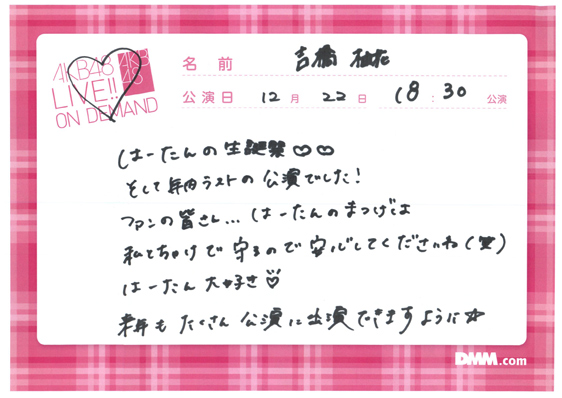 AKB48
LIVE!!
ON DEMAND
AKB
48
名前 吉橋 柚花
公演日 12月 22日 18:30 公演
はーたんの生誕祭♡♡
そして年内ラストの公演でした!
ファンの皆さん...はーたんのまつげは
私とちゃけで守るので安心してくださいね(笑)
はーたん大好き♡
来年もたくさん公演に出演できますように☆
DMM.com